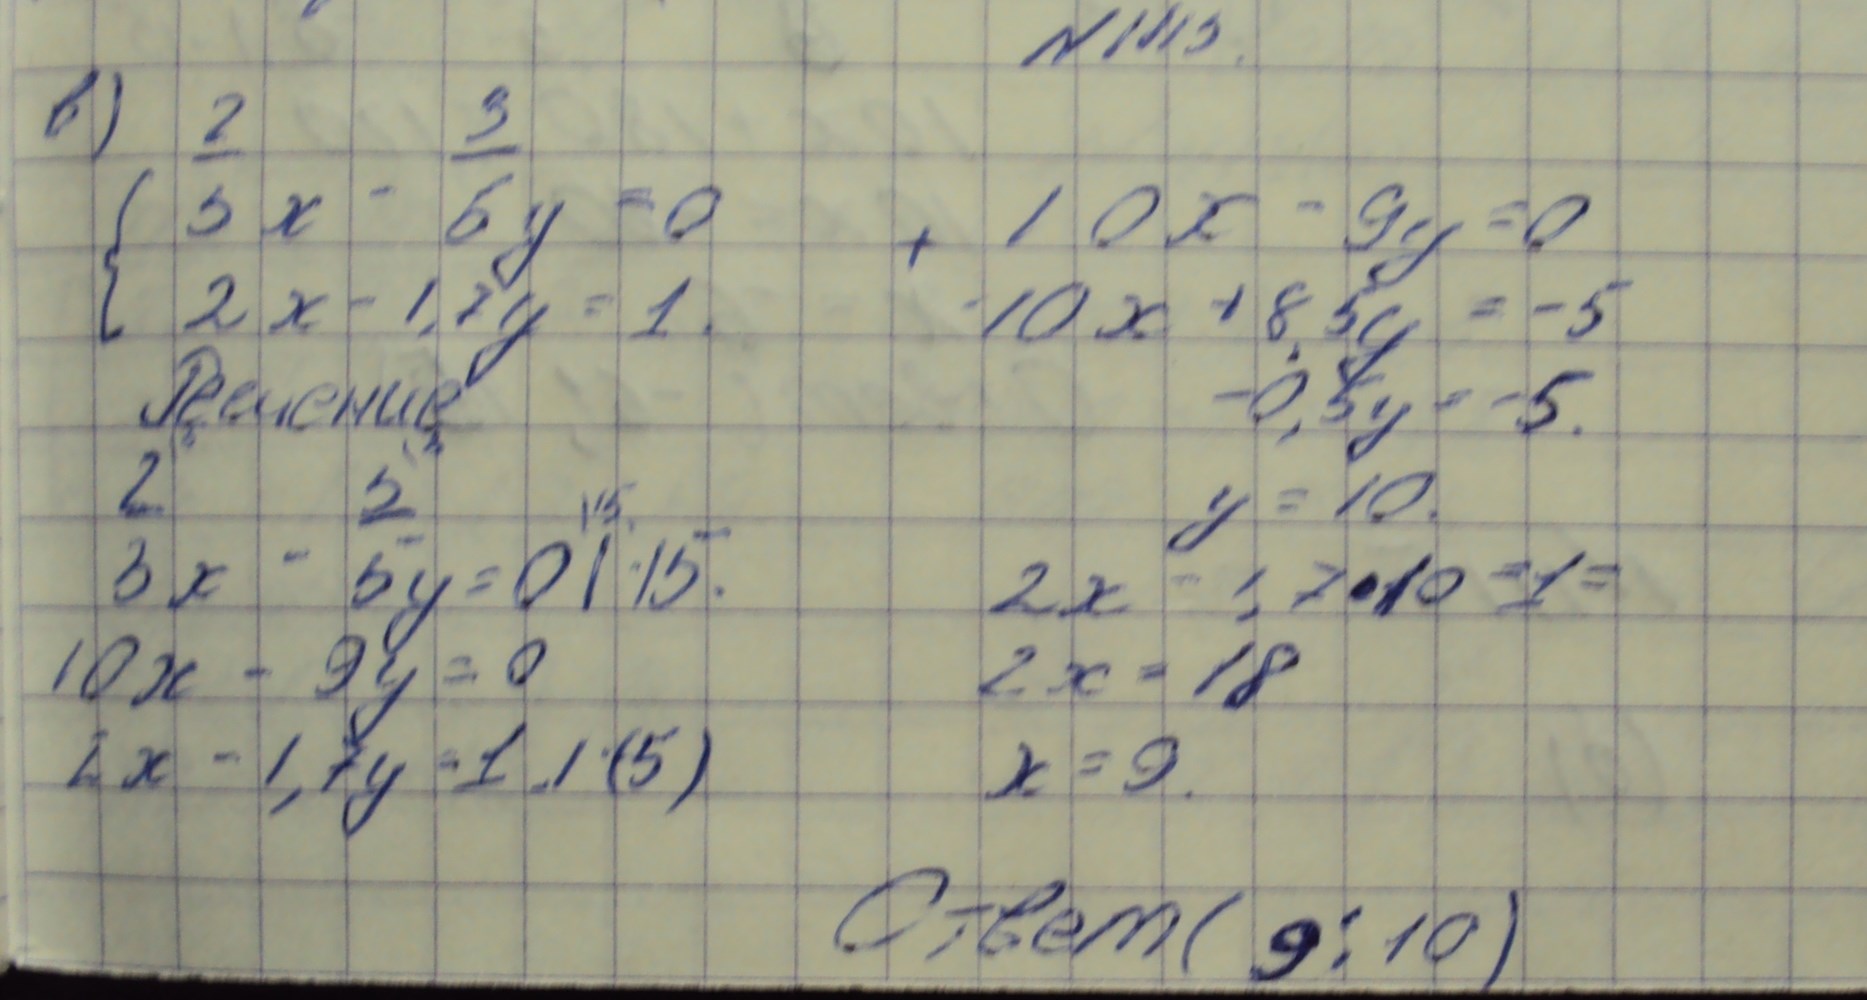 в) 2/3 x - 3/5 y = 0
2x - 1,7y = 1.
Решение
2/3 x - 3/5 y = 0 | · 15.
10x - 9y = 0
2x - 1,7y = 1 . | · (5)
+ 10x - 9y = 0
-10x + 8,5y = -5
-0,5y = -5.
y = 10.
2x - 1,7 • 10 = 1 =
2x = 18
x = 9.
Ответ (9 ; 10)